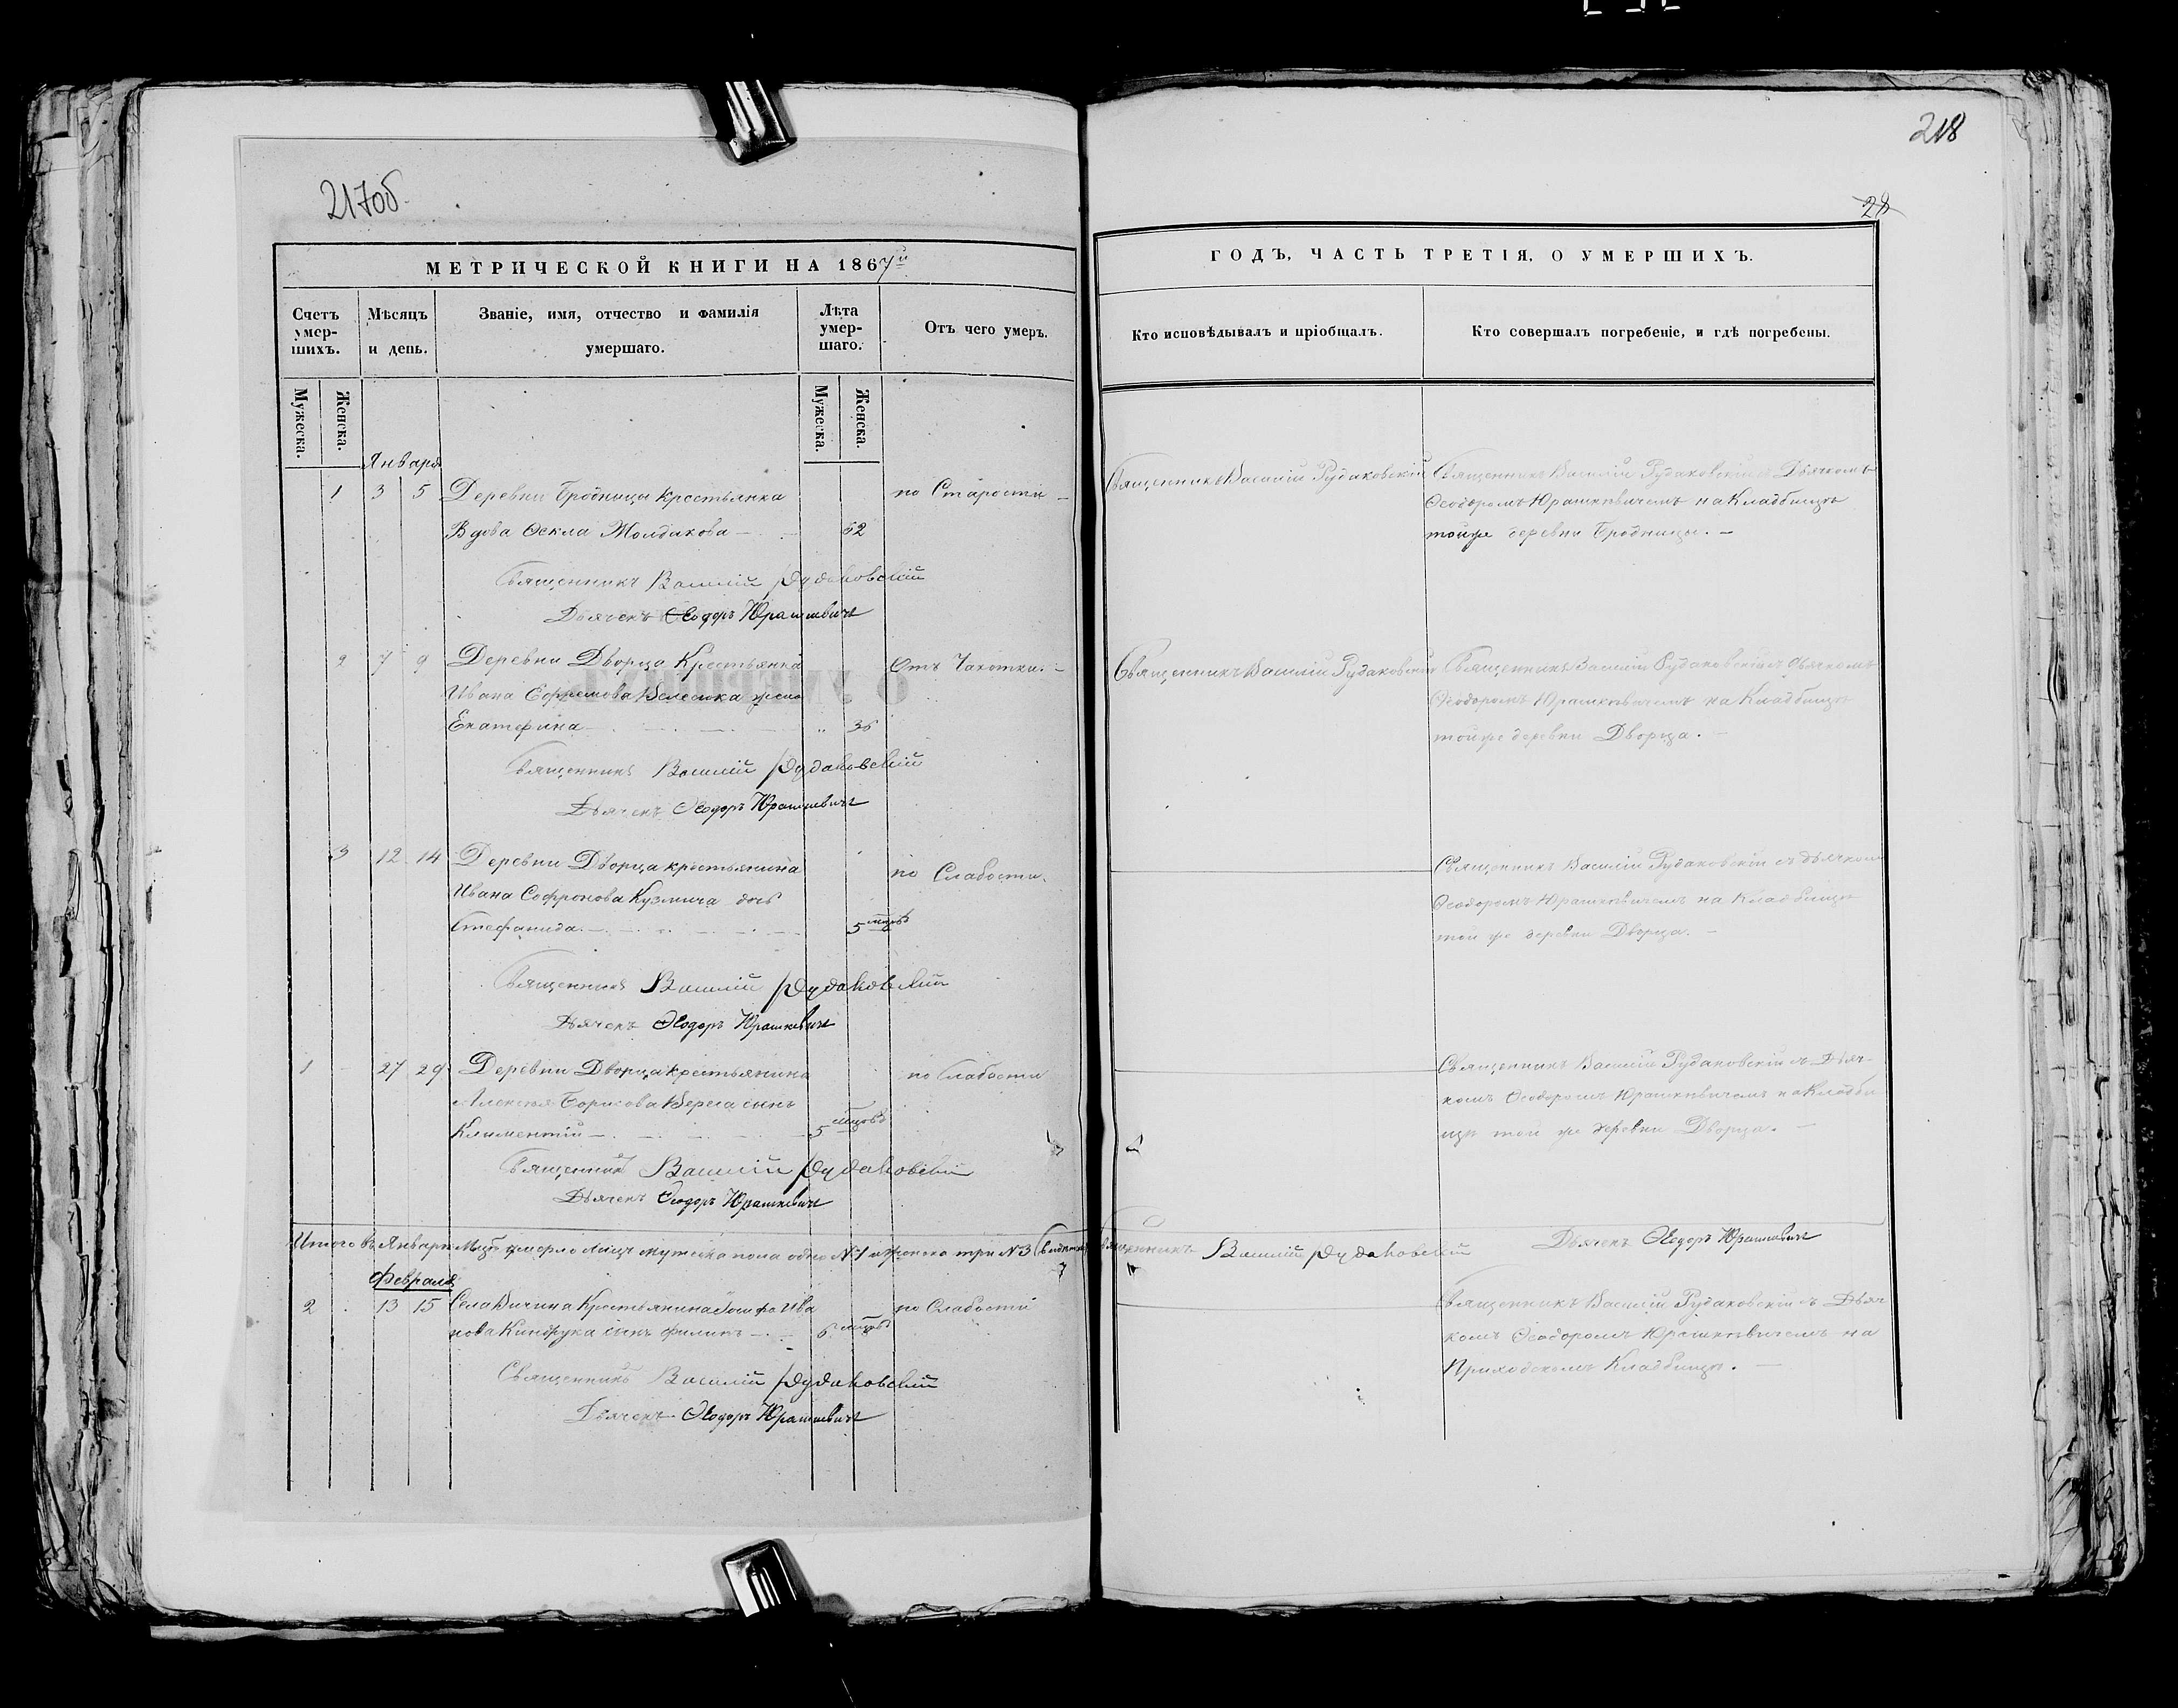 217об.
МЕТРИЧЕСКОЙ КНИГИ НА 1867й
Счетъ умер-шихъ.
Мѣсяцъ и день.
Званіе, имя, отчество и фамилія умершаго.
Лѣта умер-шаго.
Отъ чего умеръ.
Мужеска.
Женска.
Мужеска.
Женска.
Января
1 3 5 Деревни Бродницы крестьянка по Старости —
Вдова Ѳекла Молдакова — 62
Священникъ Василій Рудаковскій
Дьячекъ Ѳеодоръ Юрашкевичъ
2 7 9 Деревни Дворца Крестьянина Отъ Чахотки. —
Ивана Ефремова Велесика жена
Екатерина — " 36
Священникъ Василій Рудаковскій
Дьячекъ Ѳеодоръ Юрашкевичъ
3 12 14 Деревни Дворца крестьянина по Слабости.
Ивана Софронова Кузмича дочь
Стефанида. — 5 мцовъ
Священникъ Василій Рудаковскій
Дьячекъ Ѳеодоръ Юрашкевичъ
1 27 29 Деревни Дворца крестьянина по Слабости
Алексѣя Борисова Верега сынъ
Климентій — 5 мцовъ
Священникъ Василій Рудаковскій
Дьячекъ Ѳеодоръ Юрашкевичъ
Итого въ Январѣ Мцѣ умерло лицъ мужеска пола одно №1 и женска три №3
Февраля
2 13 15 Села Вичина Крестьянина Іосифа Ива по Слабости
нова Киндрука сынъ Филипъ — 6 мцовъ
Священникъ Василій Рудаковскій
Дьячекъ Ѳеодоръ Юрашкевичъ
218
28
ГОДЪ, ЧАСТЬ ТРЕТІЯ, О УМЕРШИХЪ.
Кто исповѣдывалъ и пріобщалъ.
Кто совершалъ погребеніе, и гдѣ погребены.
Священникъ Василій Рудаковскій
Священникъ Василій Рудаковскій съ Дьячкомъ
Ѳеодоромъ Юрашкевичемъ на Кладбищѣ
тойже деревни Бродницы. —
Священникъ Василій Рудаковскій
Священникъ Василій Рудаковскій съ Дьячкомъ
Ѳеодоромъ Юрашкевичемъ на Кладбищѣ
тойже деревни Дворца. —
Священникъ Василій Рудаковскій съ дьячком
Ѳеодоромъ Юрашкевичемъ на Кладбищѣ
той же деревни Дворца. —
Священникъ Василій Рудаковскій съ Дьяч-
комъ Ѳеодоромъ Юрашкевичемъ на Кладби
щѣ той же деревни Дворца. —
Священникъ Василій Рудаковскій Дьячекъ Ѳеодоръ Юрашкевичъ
Священникъ Василій Рудаковскій съ Дьяч
комъ Ѳеодоромъ Юрашкевичемъ на
Приходскомъ Кладбищѣ. —